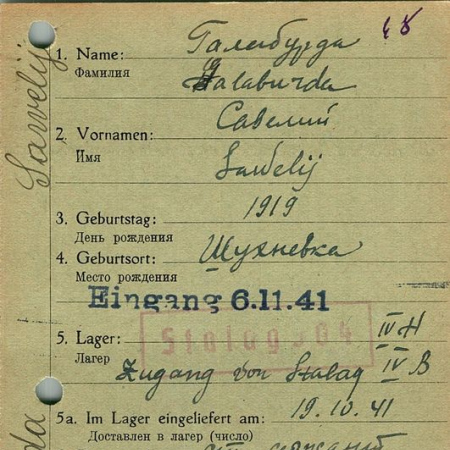 1. Name: Галабурда
Фамилия Galaburda
Савелий
2. Vornamen:
Имя Sawelij
3. Geburtstag: 1919
День рождения
4. Geburtsort: Шухневка
Место рождения
Eingang 6.11.41
Stalag 304
5. Lager: IV H
Лагер Zugang von Stalag IV B
5a. Im Lager eingeliefert am: 19.10.41
Доставлен в лагер (число)
Sawelij